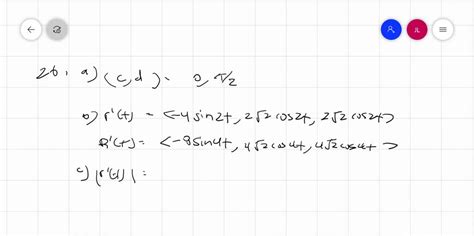 26. a) (c,d) = 0, π/2
b) r'(t) = <-4 sin2t, 2√2 cos2t, 2√2 cos2t>
R'(t) = <-8sin4t, 4√2 cos4t, 4√2 cos4t>
c) |r'(t)| =